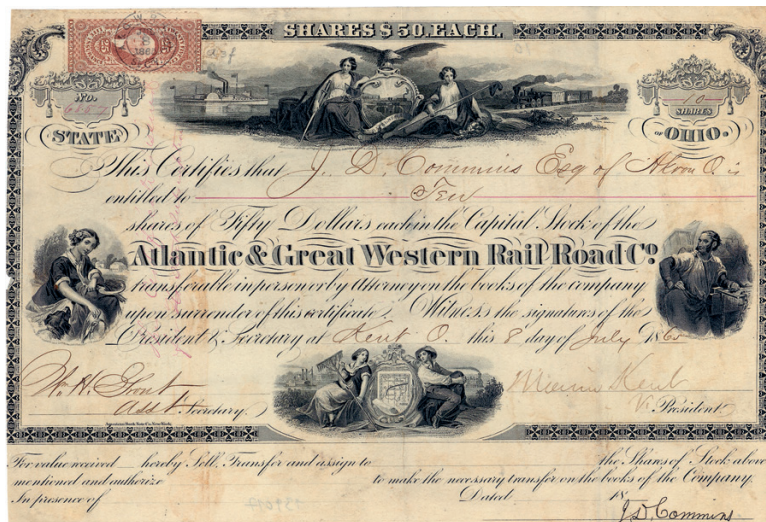 SHARES $50. EACH.
No.
10
SHARES
STATE OF OHIO.
This Certifies that J. D. Commins Esq of Akron O. is
entitled to Ten
shares of Fifty Dollars each in the Capital Stock of the
Atlantic & Great Western Rail Road Co.
transferable in person or by Attorney on the books of the company
upon surrender of this certificate. Witness the signatures of the
President & Secretary at Kent O. this 8 day of July 1865
Asst. Secretary.
Marvin Kent
V. President
For value received hereby Sell, Transfer and assign to the Shares of Stock above
mentioned and authorize to make the necessary transfer on the books of the Company.
In presence of Dated 18
J. D. Commins